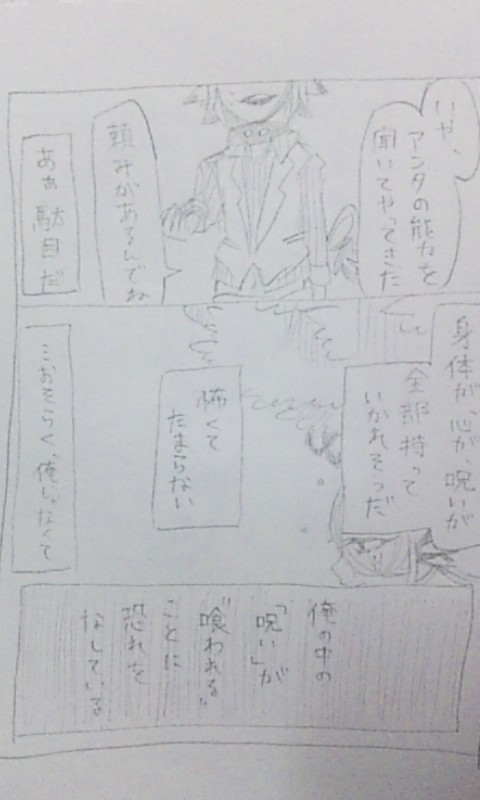 いや、
アンタの能力を
聞いてやってきた
頼みがあるんでね
あぁ駄目だ
身体が、心が、呪いが
全部持って
いかれそうだ
怖くて
たまらない
…おそらく、俺じゃなくて
俺の中の
「呪い」が
“喰われる”
ことに
恐れを
なしている